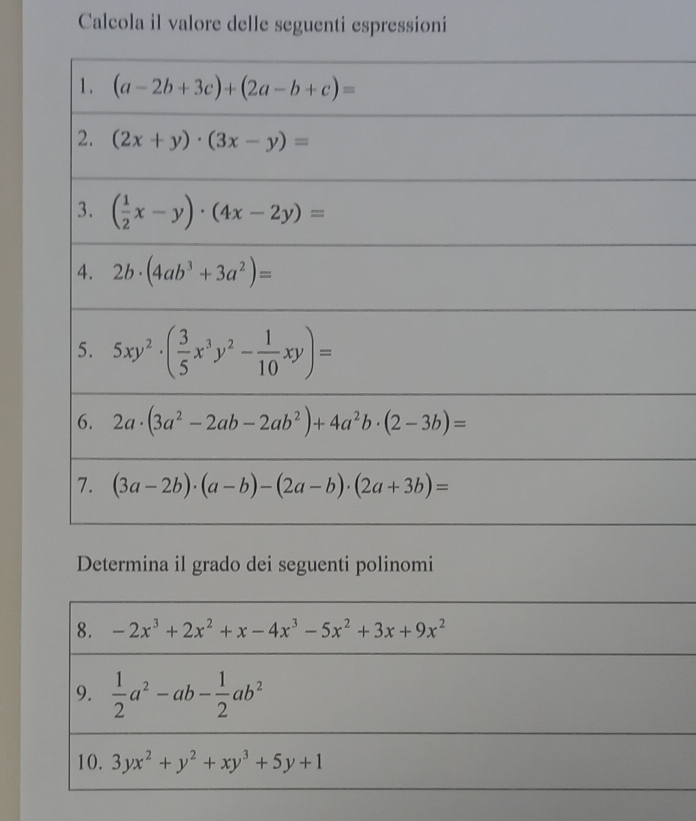 Calcola il valore delle seguenti espressioni
1. (a − 2b + 3c) + (2a − b + c) =
2. (2x + y) · (3x − y) =
3. (1/2 x − y) · (4x − 2y) =
4. 2b · (4ab³ + 3a²) =
5. 5xy² · (3/5 x³y² − 1/10 xy) =
6. 2a · (3a² − 2ab − 2ab²) + 4a²b · (2 − 3b) =
7. (3a − 2b) · (a − b) − (2a − b) · (2a + 3b) =
Determina il grado dei seguenti polinomi
8. − 2x³ + 2x² + x − 4x³ − 5x² + 3x + 9x²
9. 1/2 a² − ab − 1/2 ab²
10. 3yx² + y² + xy³ + 5y + 1